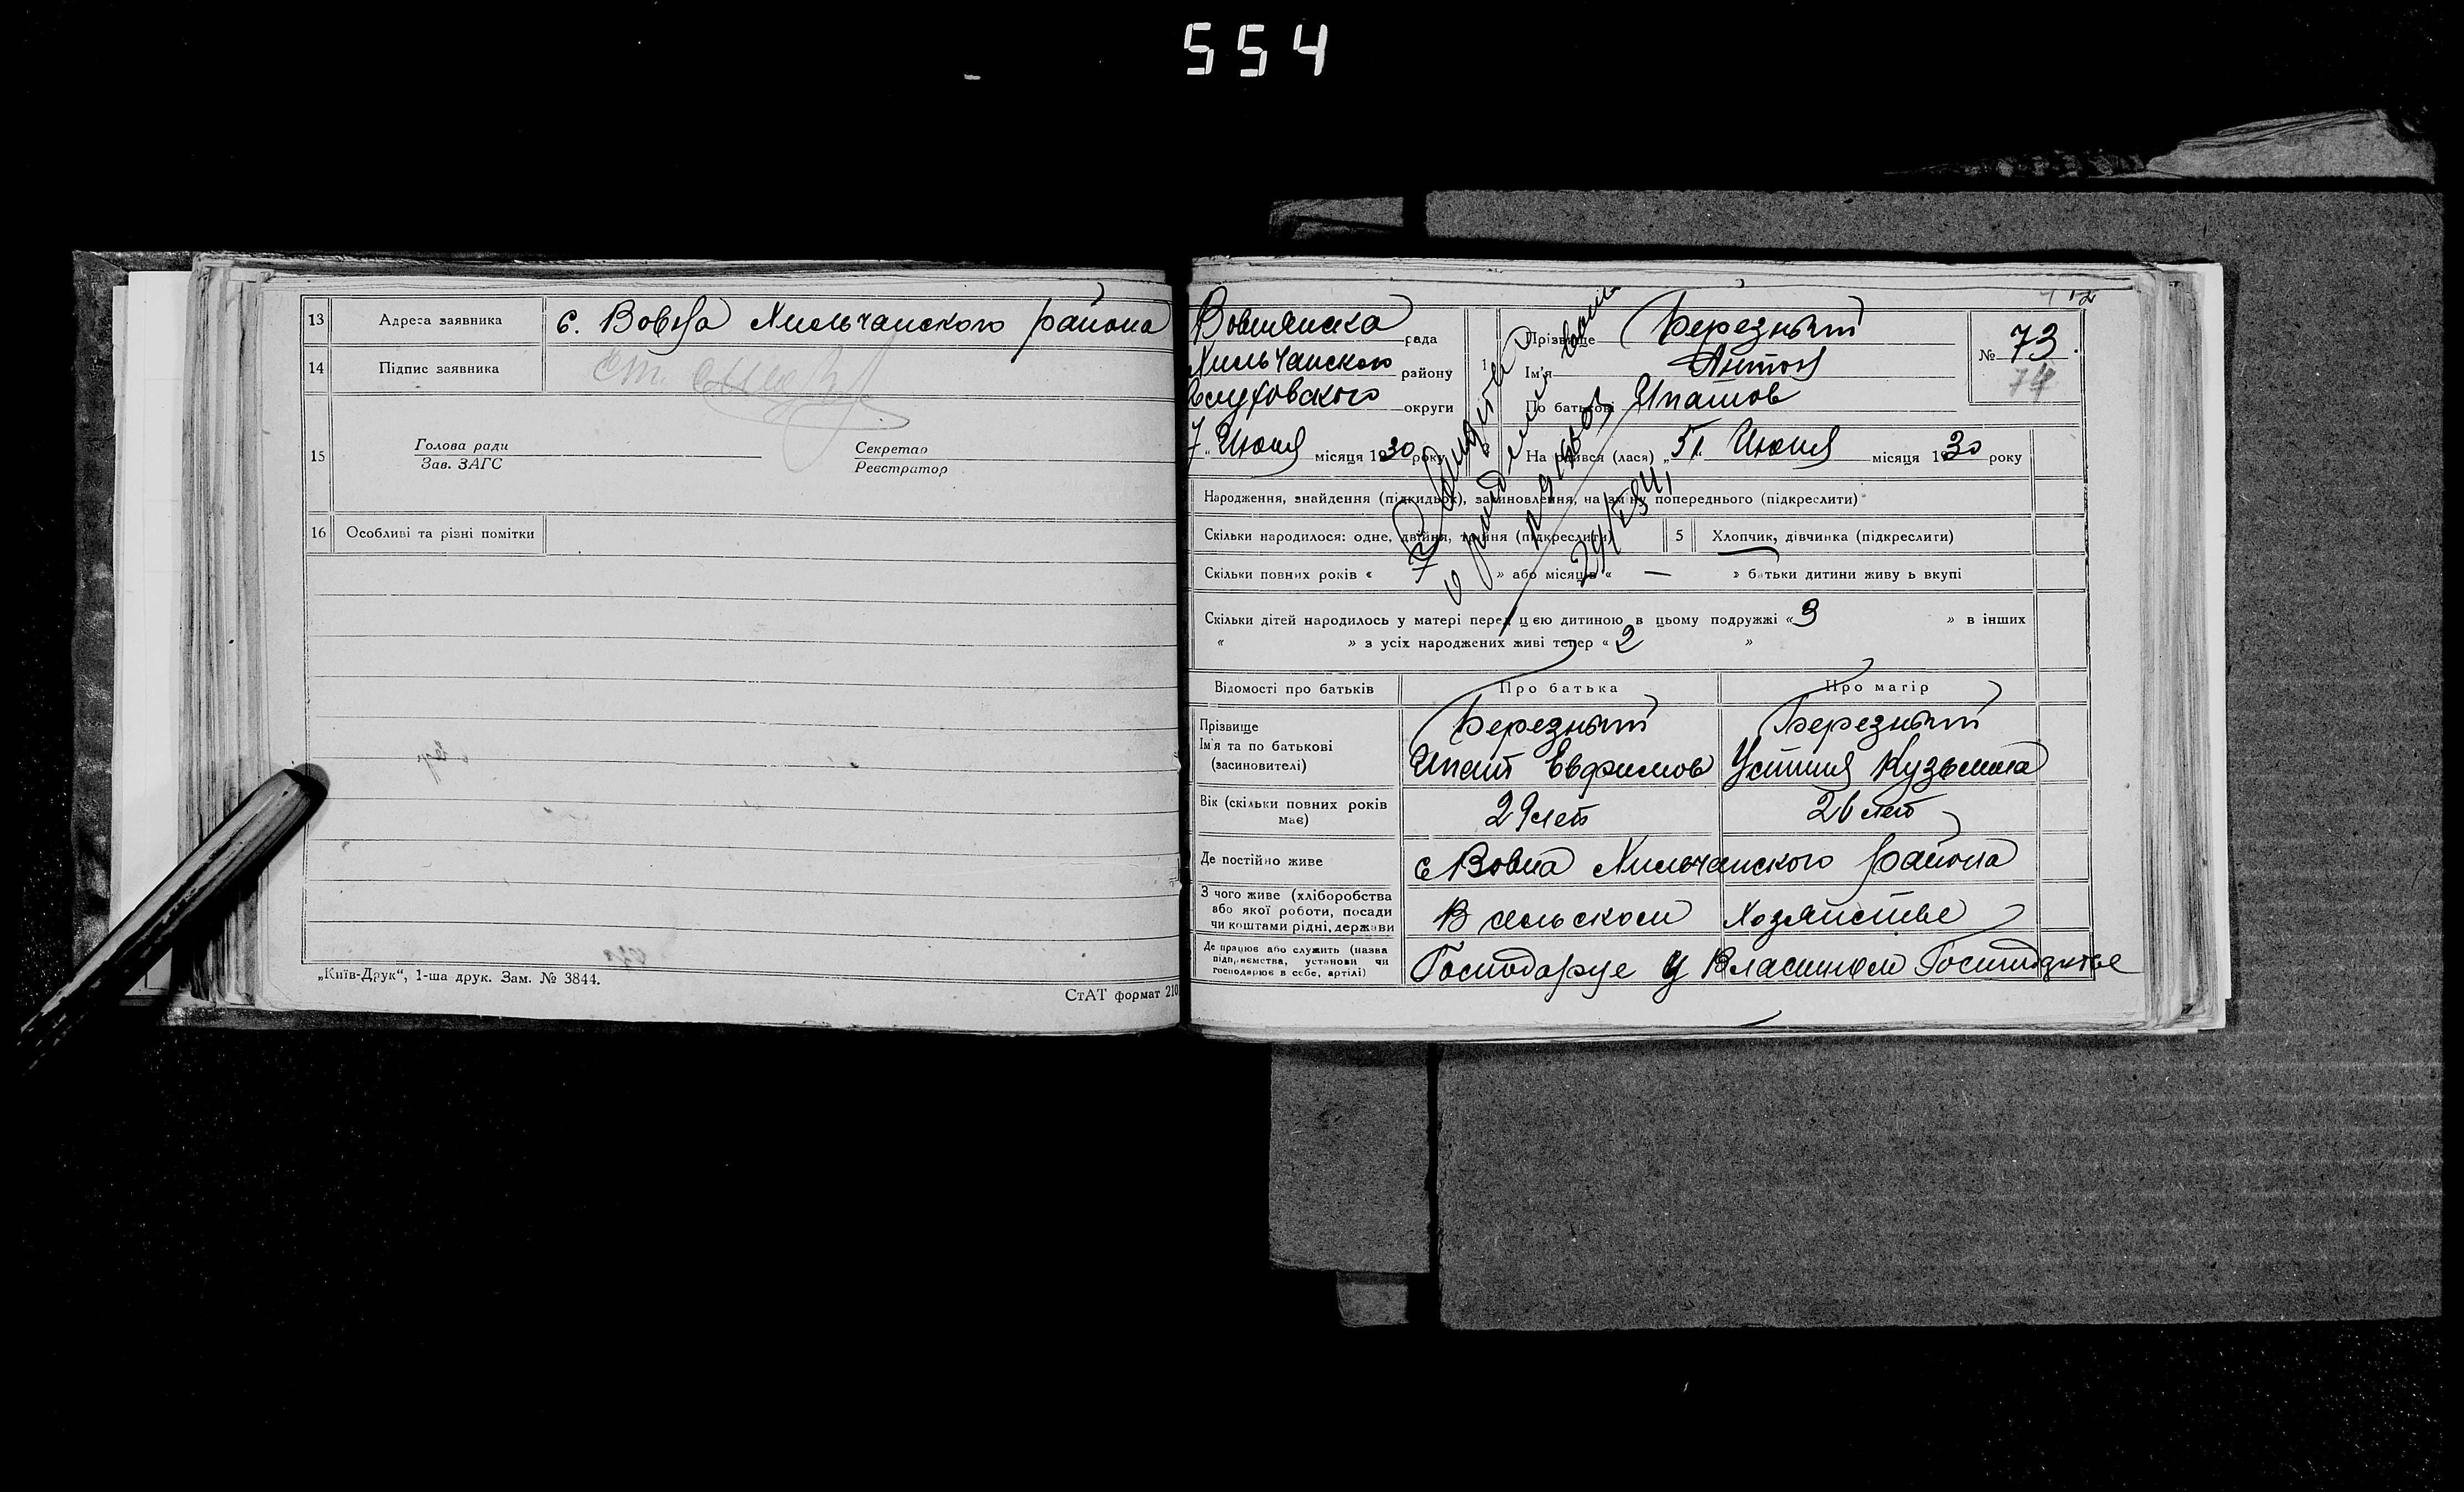 554
13 Адреса заявника с. Вовна Хильчанского района
14 Підпис заявника
15 Голова ради Секретар
Зав. ЗАГС Реєстратор
16 Особливі та різні помітки
„Київ-Друк“, 1-ша друк. Зам. № 3844.
СтАТ формат 210
12
Вовнянска рада
Хильчанского району
Глуховского округи
7 „Июня місяця 1930 року
1 Прізвище Березный
Ім'я Антон
По батькові Ипатов
№ 73.
74
Народився (лася) „5". Июня місяця 1930 року
Народження, знайдення (підкидьок), засиновлення, на зміну попереднього (підкреслити)
Скільки народилося: одне, двійня, тройня (підкреслити) 5 Хлопчик, дівчинка (підкреслити)
Скільки повних років « » або місяців « — » батьки дитини живуть вкупі
Скільки дітей народилось у матері перед цєю дитиною в цьому подружжі «3 » в інших
« » з усіх народжених живі тепер «2 »
Відомості про батьків Про батька Про матір
Прізвище Березный Березный
Ім'я та по батькові Ипат Евфимов Устиния Кузьмина
(засиновителі)
Вік (скільки повних років 29 лет 26 лет
має)
Де постійно живе с Вовна Хильчанского района
З чого живе (хліборобства
або якої роботи, посади В сельском Хозяистве
чи коштами рідні, держави
Де працює або служить (назва
підприємства, установи чи Господаруе у Власином Господкстве
господарює в себе, артілі)